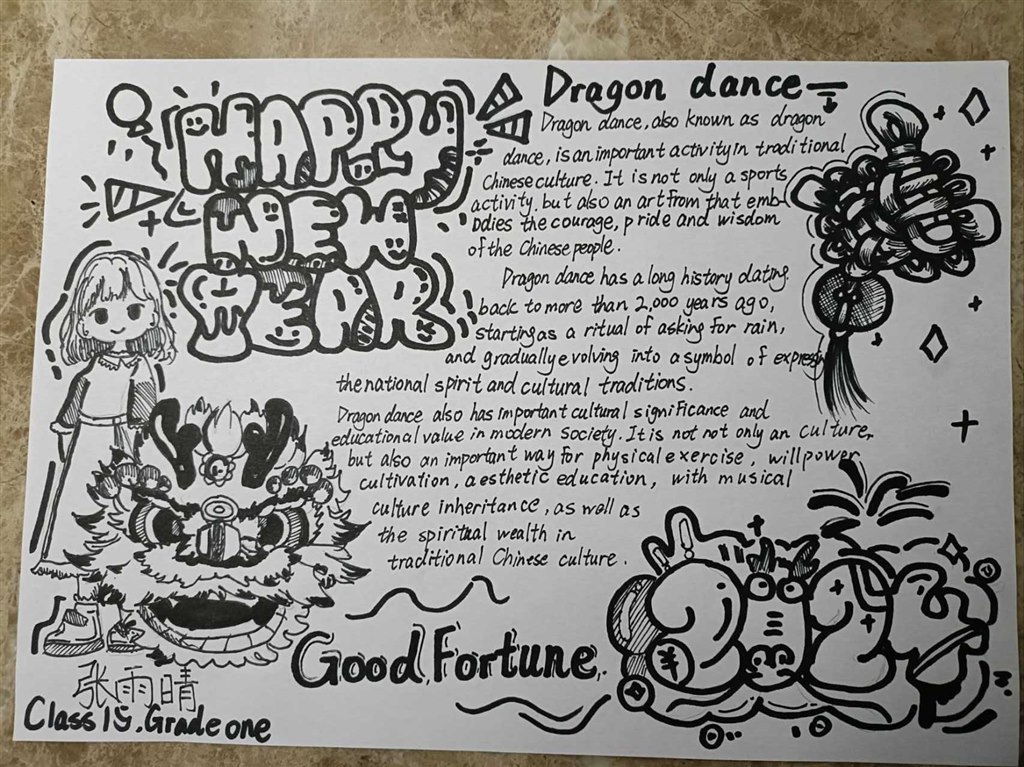 HAPPY
NEW
YEAR
Dragon dance
Dragon dance, also known as dragon
dance, is an important activity in traditional
Chinese culture. It is not only a sports
activity, but also an art from that emb-
odies the courage, pride and wisdom
of the Chinese people.
Dragon dance has a long history dating
back to more than 2,000 years ago,
starting as a ritual of asking for rain,
and gradually evolving into a symbol of express
the national spirit and cultural traditions.
Dragon dance also has important cultural significance and
educational value in modern society. It is not not only an culture,
but also an important way for physical exercise, willpower
cultivation, aesthetic education, with musical
culture inheritance, as well as
the spiritual wealth in
traditional Chinese culture.
Good Fortune.
张雨晴
Class 15. Grade one